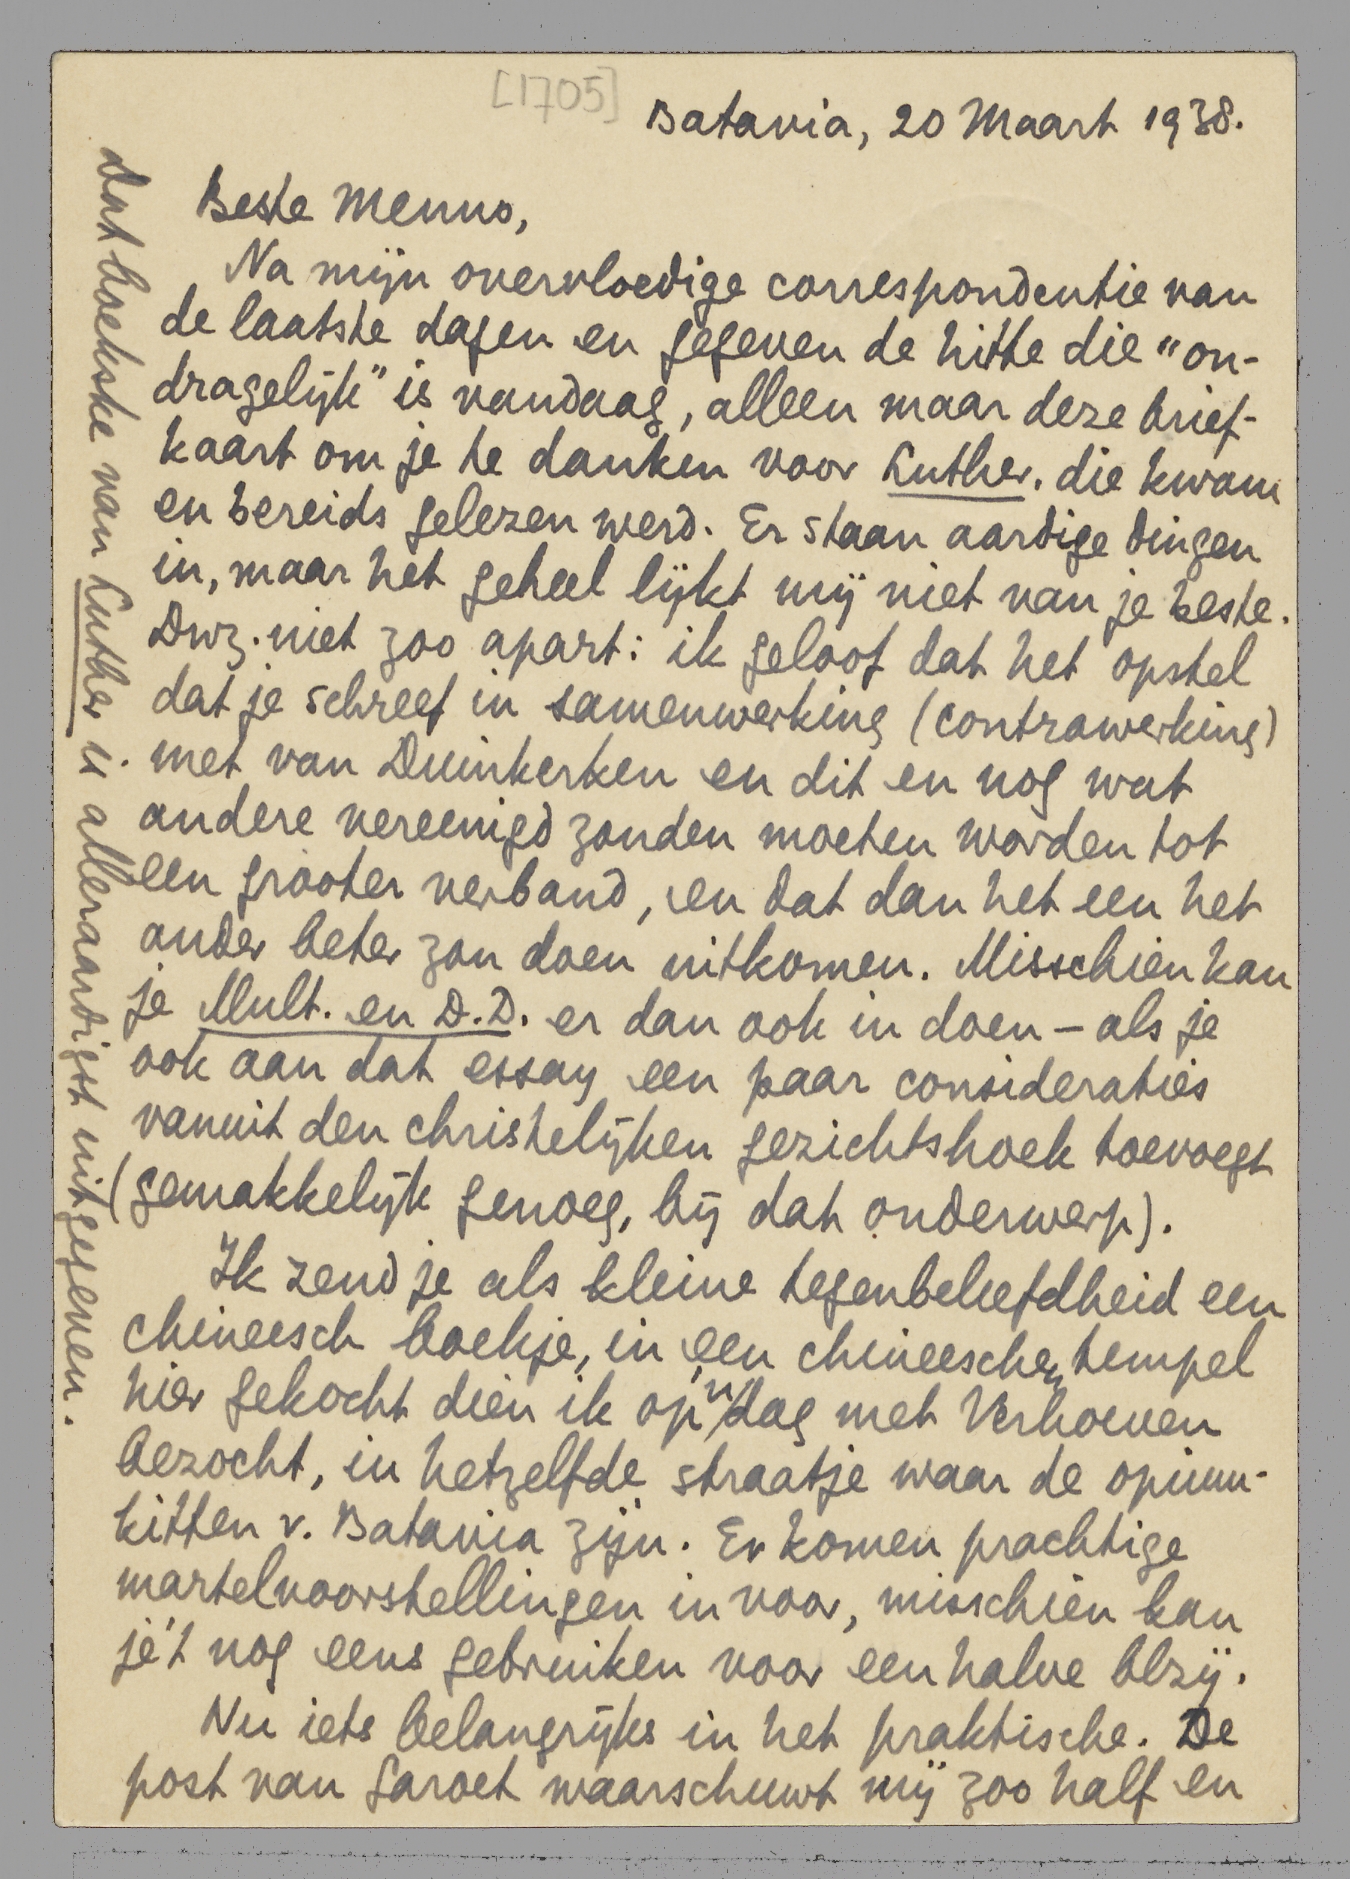 [1705]
Batavia, 20 Maart 1938.
Beste Menno,
Na mijn overvloedige correspondentie van
de laatste dagen en gegeven de hitte die "on-
dragelijk" is vandaag, alleen maar deze brief-
kaart om je te danken voor Luther. die kwam
en bereids gelezen werd. Er staan aardige dingen
in, maar het geheel lijkt mij niet van je beste.
Dwz. niet zoo apart: ik geloof dat het opstel
dat je schreef in samenwerking (contrawerking)
met van Duinkerken en dit en nog wat
andere vereenigd zouden moeten worden tot
een grooter verband, en dat dan het een het
ander beter zou doen uitkomen. Misschien kan
je Mult. en D.D. er dan ook in doen – als je
ook aan dat essay een paar consideraties
vanuit den christelijken gezichtshoek toevoegt
(gemakkelijk genoeg, bij dat onderwerp).
Ik zend je als kleine tegenbeleefdheid een
chineesch boekje, in een chineeschen tempel
hier gekocht dien ik op 'n dag met Verhoeven
bezocht, in hetzelfde straatje waar de opium-
kitten v. Batavia zijn. Er komen prachtige
martelvoorstellingen in voor, misschien kan
je't nog eens gebruiken voor een halve blzij.
Nu iets belangrijks in het praktische. De
post van Garoet waarschuwt mij zoo half en
Dat boekske van Luther is alleraardigst uitgegeven.